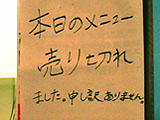 本日のメニュー
売り切れ
ました。申し訳ありません。